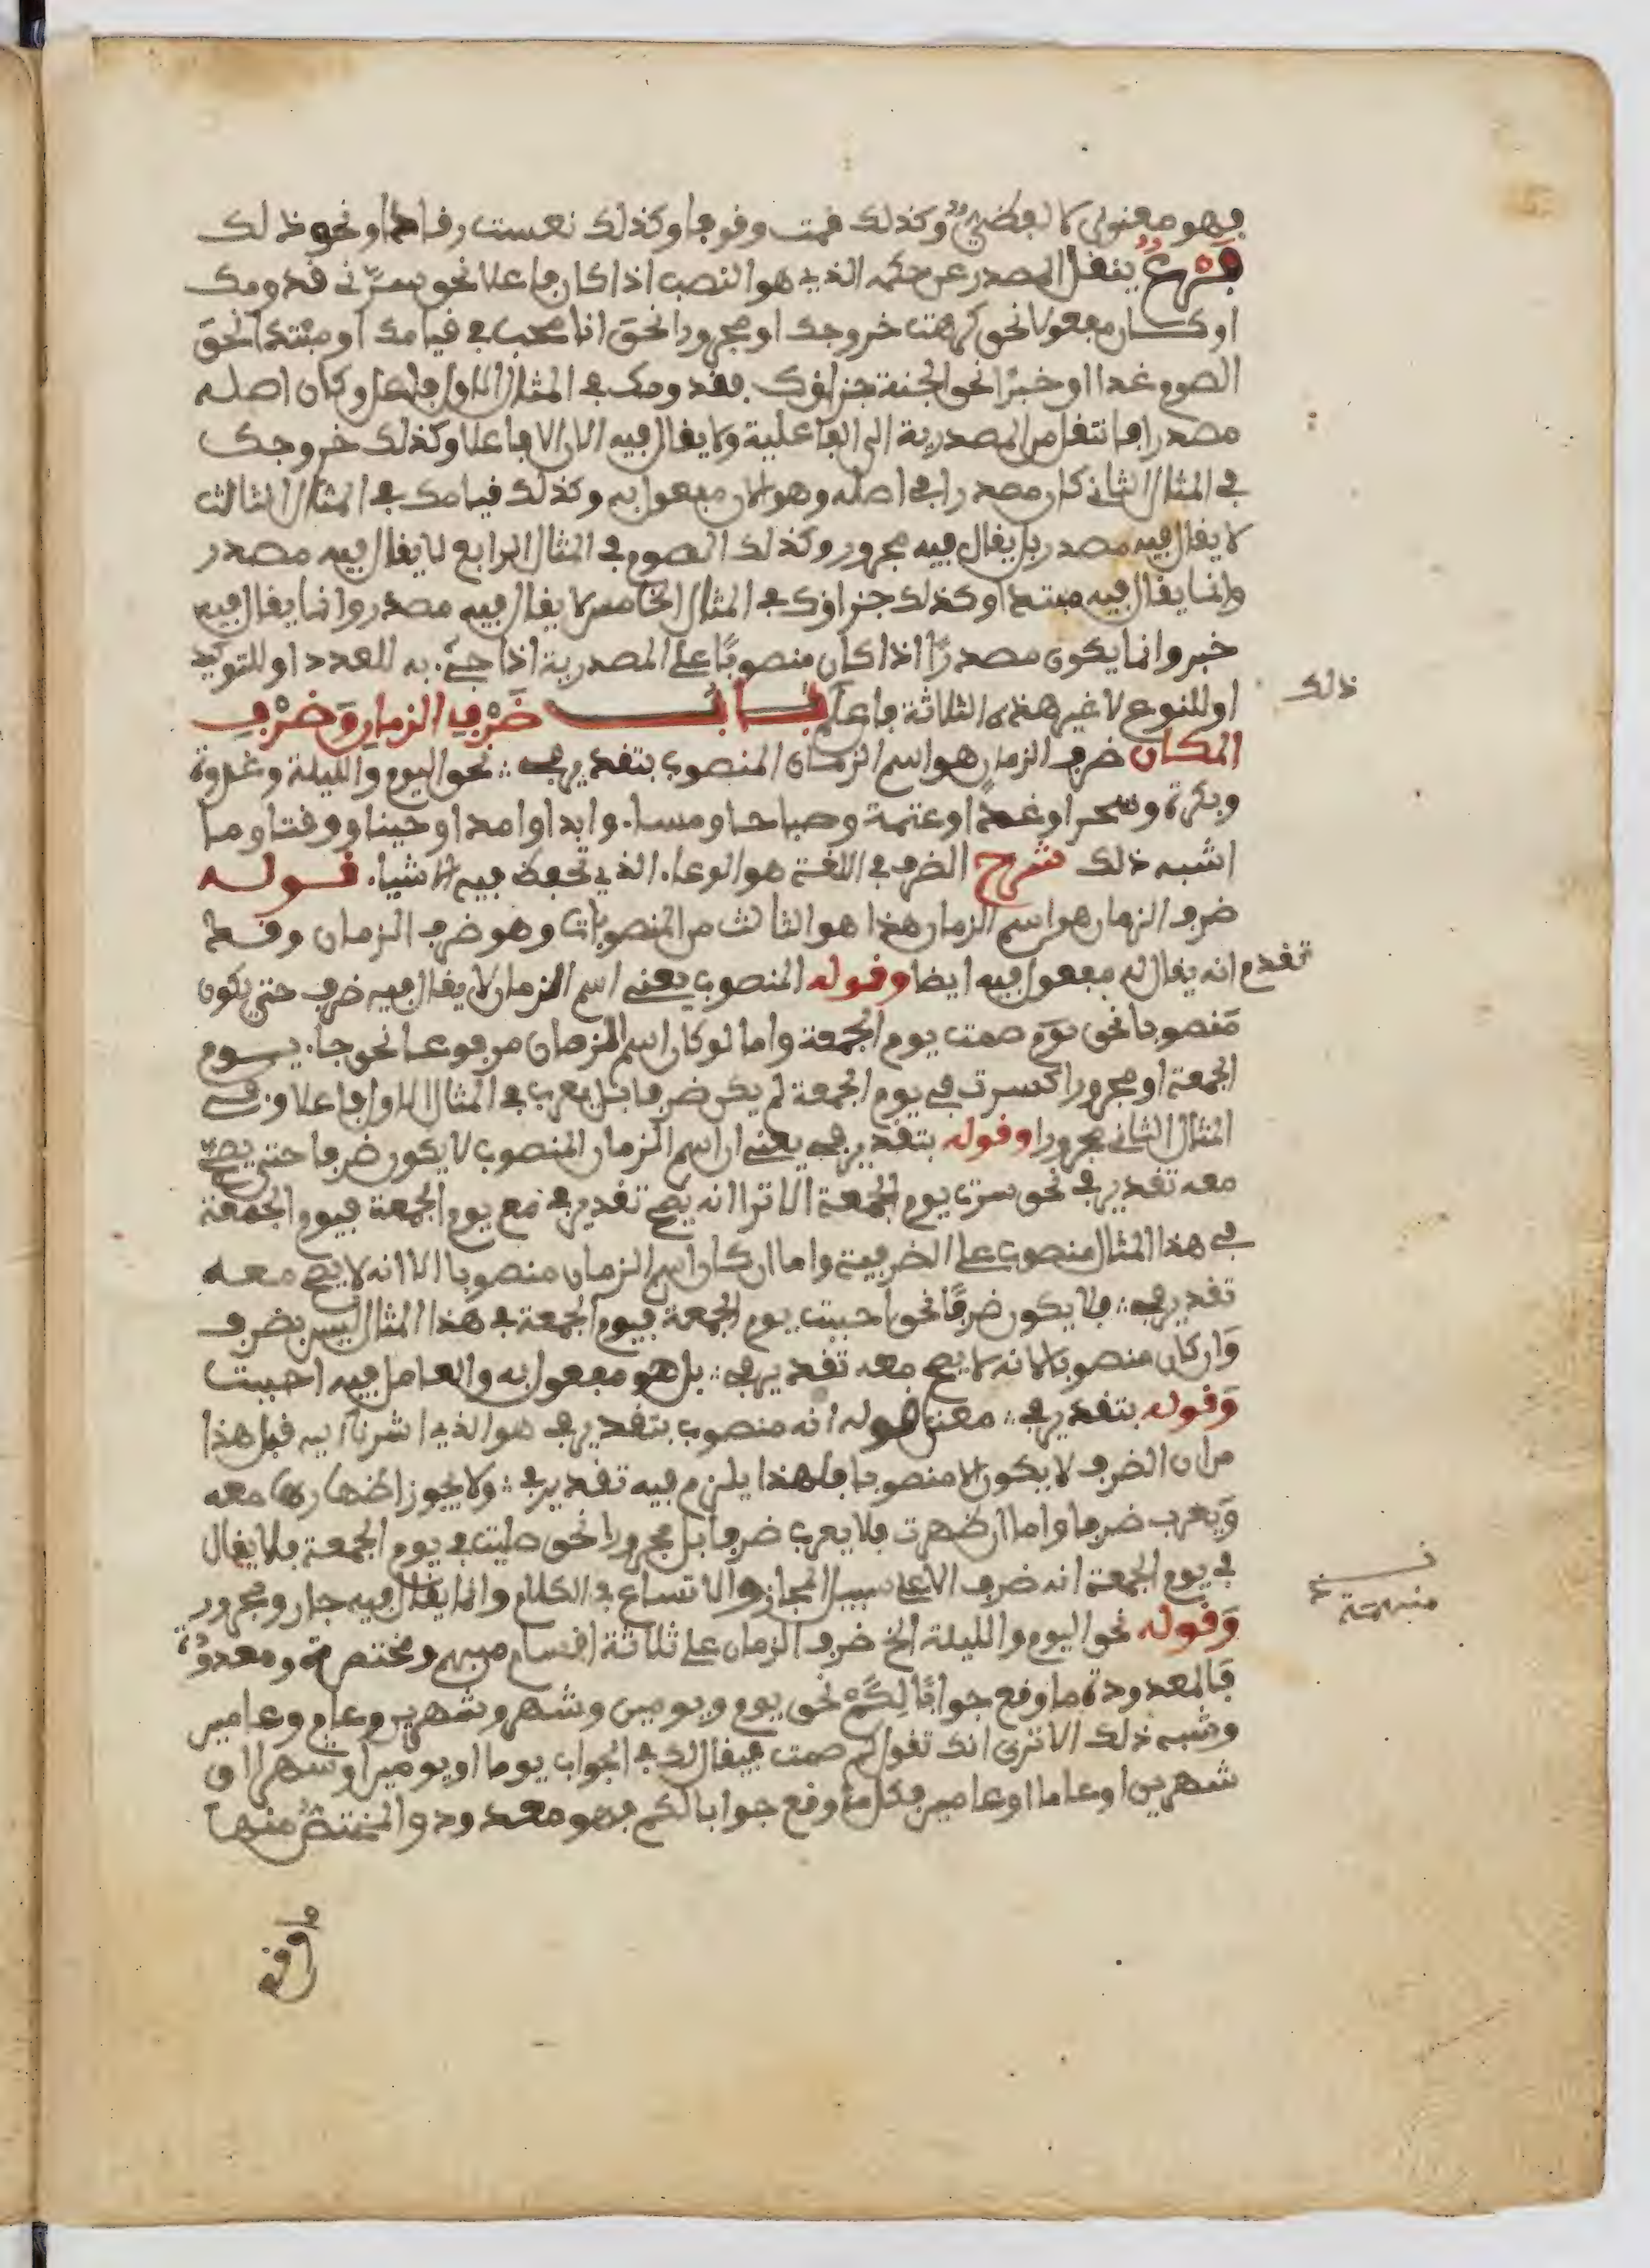 فهو معنوي لا لفظيٌّ وكذلك قمت وقوفا وكذلك نعست رقادا ونحو ذلك
فَرْعٌ ينقل المصدر عن حكمه الذي هو النصب اذا كان فاعلا نحو يسرّني قدومك
او كان مفعولا نحو كرهت خروجك او مجرورا نحو انا عجب في قيامك او مبتدا نحوَ
الصوم غدا او خبرًا نحو الجنة جزاؤك فقدومك في المثال الاول فاعل وكان اصله
مصدرا فانتقل من المصدرية الى الفاعلية ولا يقال فيه الان الا فاعلا وكذلك خروجك
في المثال الثاني كان مصدرا في اصله وهو الان مفعول به وكذلك قيامك في المثال الثالث
لا يقال فيه مصدر بل يقال فيه مجرور وكذلك الصوم في المثال الرابع لا يقال فيه مصدر
وانما يقال فيه مبتدا وكذلك جزاؤك في المثال الخامس لا يقال فيه مصدر وانما يقال فيه
خبر وانما يكون مصدرًا اذا كان منصوبًا على المصدرية اذا جيء به للعدد او للتوكيد
او للنوع لا غير هذه الثلاثة فاعلم بــاب ضَرْفِ الزمان وَضرْفِ
ذلك
المكان ضرف الزمان هو اسم الزمان المنصوب بتقدير في نحو اليوم والليلة وغدوة
وبكرة وسحرا وغدا وعتمة وصباحا ومساء وابدا وامدا وحينا ووقتا وما
اشبه ذلك شرح الضرف في اللغة هو الوعاء الذي تحفظ فيه الاشياء قولــه
ضرف الزمان هو اسم الزمان هذا هو الثالث من المنصوبات وهو ضرف الزمان وقد
تقدم انه يقال له مفعول فيه ايضا وقوله المنصوب يعني اسم الزمان لا يقال فيه ضرف حتى يكون
منصوبا نحو يوم صمت يوم الجمعة واما لو كان اسم الزمان مرفوعا نحو جاء يــوم
الجمعة او مجرورا كسرت في يوم الجمعة لم يكن ضرفا بل يعرب في المثال الاول فاعلا وفي
المثال الثاني مجرورا وقوله بتقدير في يعني ان اسم الزمان المنصوب لا يكون ضرفا حتى يصحّ
معه تقدير في نحو سرت يوم الجمعة الا ترا انه يصح تقدير في مع يوم الجمعة فيوم الجمعة
في هذا المثال منصوب على الضرفية واما ان كان اسم الزمان منصوبا الا انه لا يصح معــه
تقدير في فلا يكون ضرفًا نحو احببت يوم الجمعة فيوم الجمعة في هذا المثال ليس بضرف
وَان كان منصوبا لانه لا يصح معه تقدير في بل هو مفعول به والعامل فيه احببت
وَقوله بتقدير في معنى قوله انه منصوب بتقدير في هو الذي اشرنا اليه قبل هذا
من ان الضرف لا يكون الا منصوبا فلهذا يلزم فيه تقدير في ولا يجوز اضهارها معه
وَيعرب ضرفا واما ان ضهرت فلا يعرب ضرفا بل مجرورا نحو صليت في يوم الجمعة فلا يقال
في يوم الجمعة انه ضرف الا على سبيل المجاز والاتساع في الكلام وانما يقال فيه جار ومجرور
وَقوله نحو اليوم والليلة الخ ضرف الزمان على ثلاثة اقسام مبهم ومختصة ومعدودة
مبهمة
فَالمعدودة ما وقع جوابًا لِكَمْ نحو يوم ويومين وشهر وشهرين وعام وعامين
وشبه ذلك الا ترى انك تقول كم صمت فيقال لك في الجواب يوما او يومين او شهرا او
شهرين او عاما او عامين فكل ما وقع جوابا لكم فهو معدود والمختصُّ منها